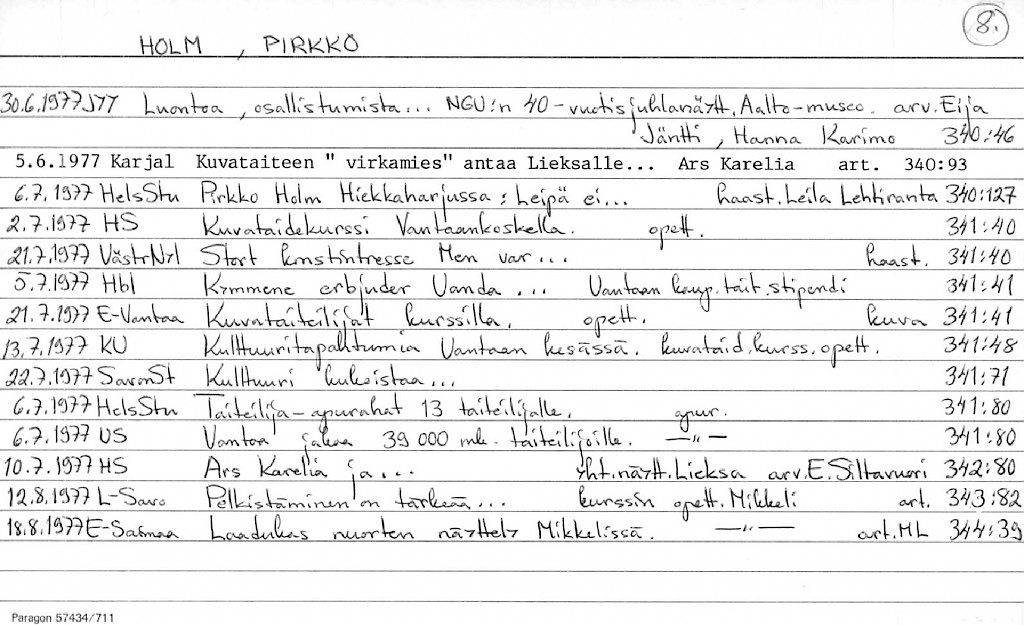 8.
HOLM, PIRKKO
30.6.1977 JYY Luontoa, osallistumista... NGU:n 40-vuotisjuhlanäytt. Aalto-museo. arv. Eija
Jäntti, Hanna Karimo 340:46
5.6.1977 Karjal Kuvataiteen " virkamies" antaa Lieksalle... Ars Karelia art. 340:93
6.7.1977 HelsStu Pirkko Holm Hiekkaharjussa: Leipä ei... haast. Leila Lehtiranta 340:127
2.7.1977 HS Kuvataidekurssi Vantaankoskella. opett. 341:40
21.7.1977 VästrNyl Stort konstintresse Men var... haast. 341:40
5.7.1977 Hbl Kymmene erbjuder Vanda ... Vantaan kaup. tait. stipendi 341:41
21.7.1977 E-Vantaa Kuvataiteilijat kurssilla. opett. kuva 341:41
13.7.1977 KU Kulttuuritapahtumia Vantaan kesässä. kuvataid.kurss. opett. 341:48
22.7.1977 SavonSt Kulttuuri kukoistaa... 341:71
6.7.1977 HelsStu Taiteilija-apurahat 13 taiteilijalle. apur. 341:80
6.7.1977 US Vantaa jakaa 39 000 mk. taiteilijoille. —"— 341:80
10.7.1977 HS Ars Karelia ja... yht.näytt. Lieksa arv. E. Siltavuori 342:80
12.8.1977 L-Savo Pelkistäminen on tärkeää... kurssin opett. Mikkeli art. 343:82
18.8.1977 E-Saimaa Laadukas nuorten näyttely Mikkelissä. —"— art. ML 344:39
Paragon 57434/711